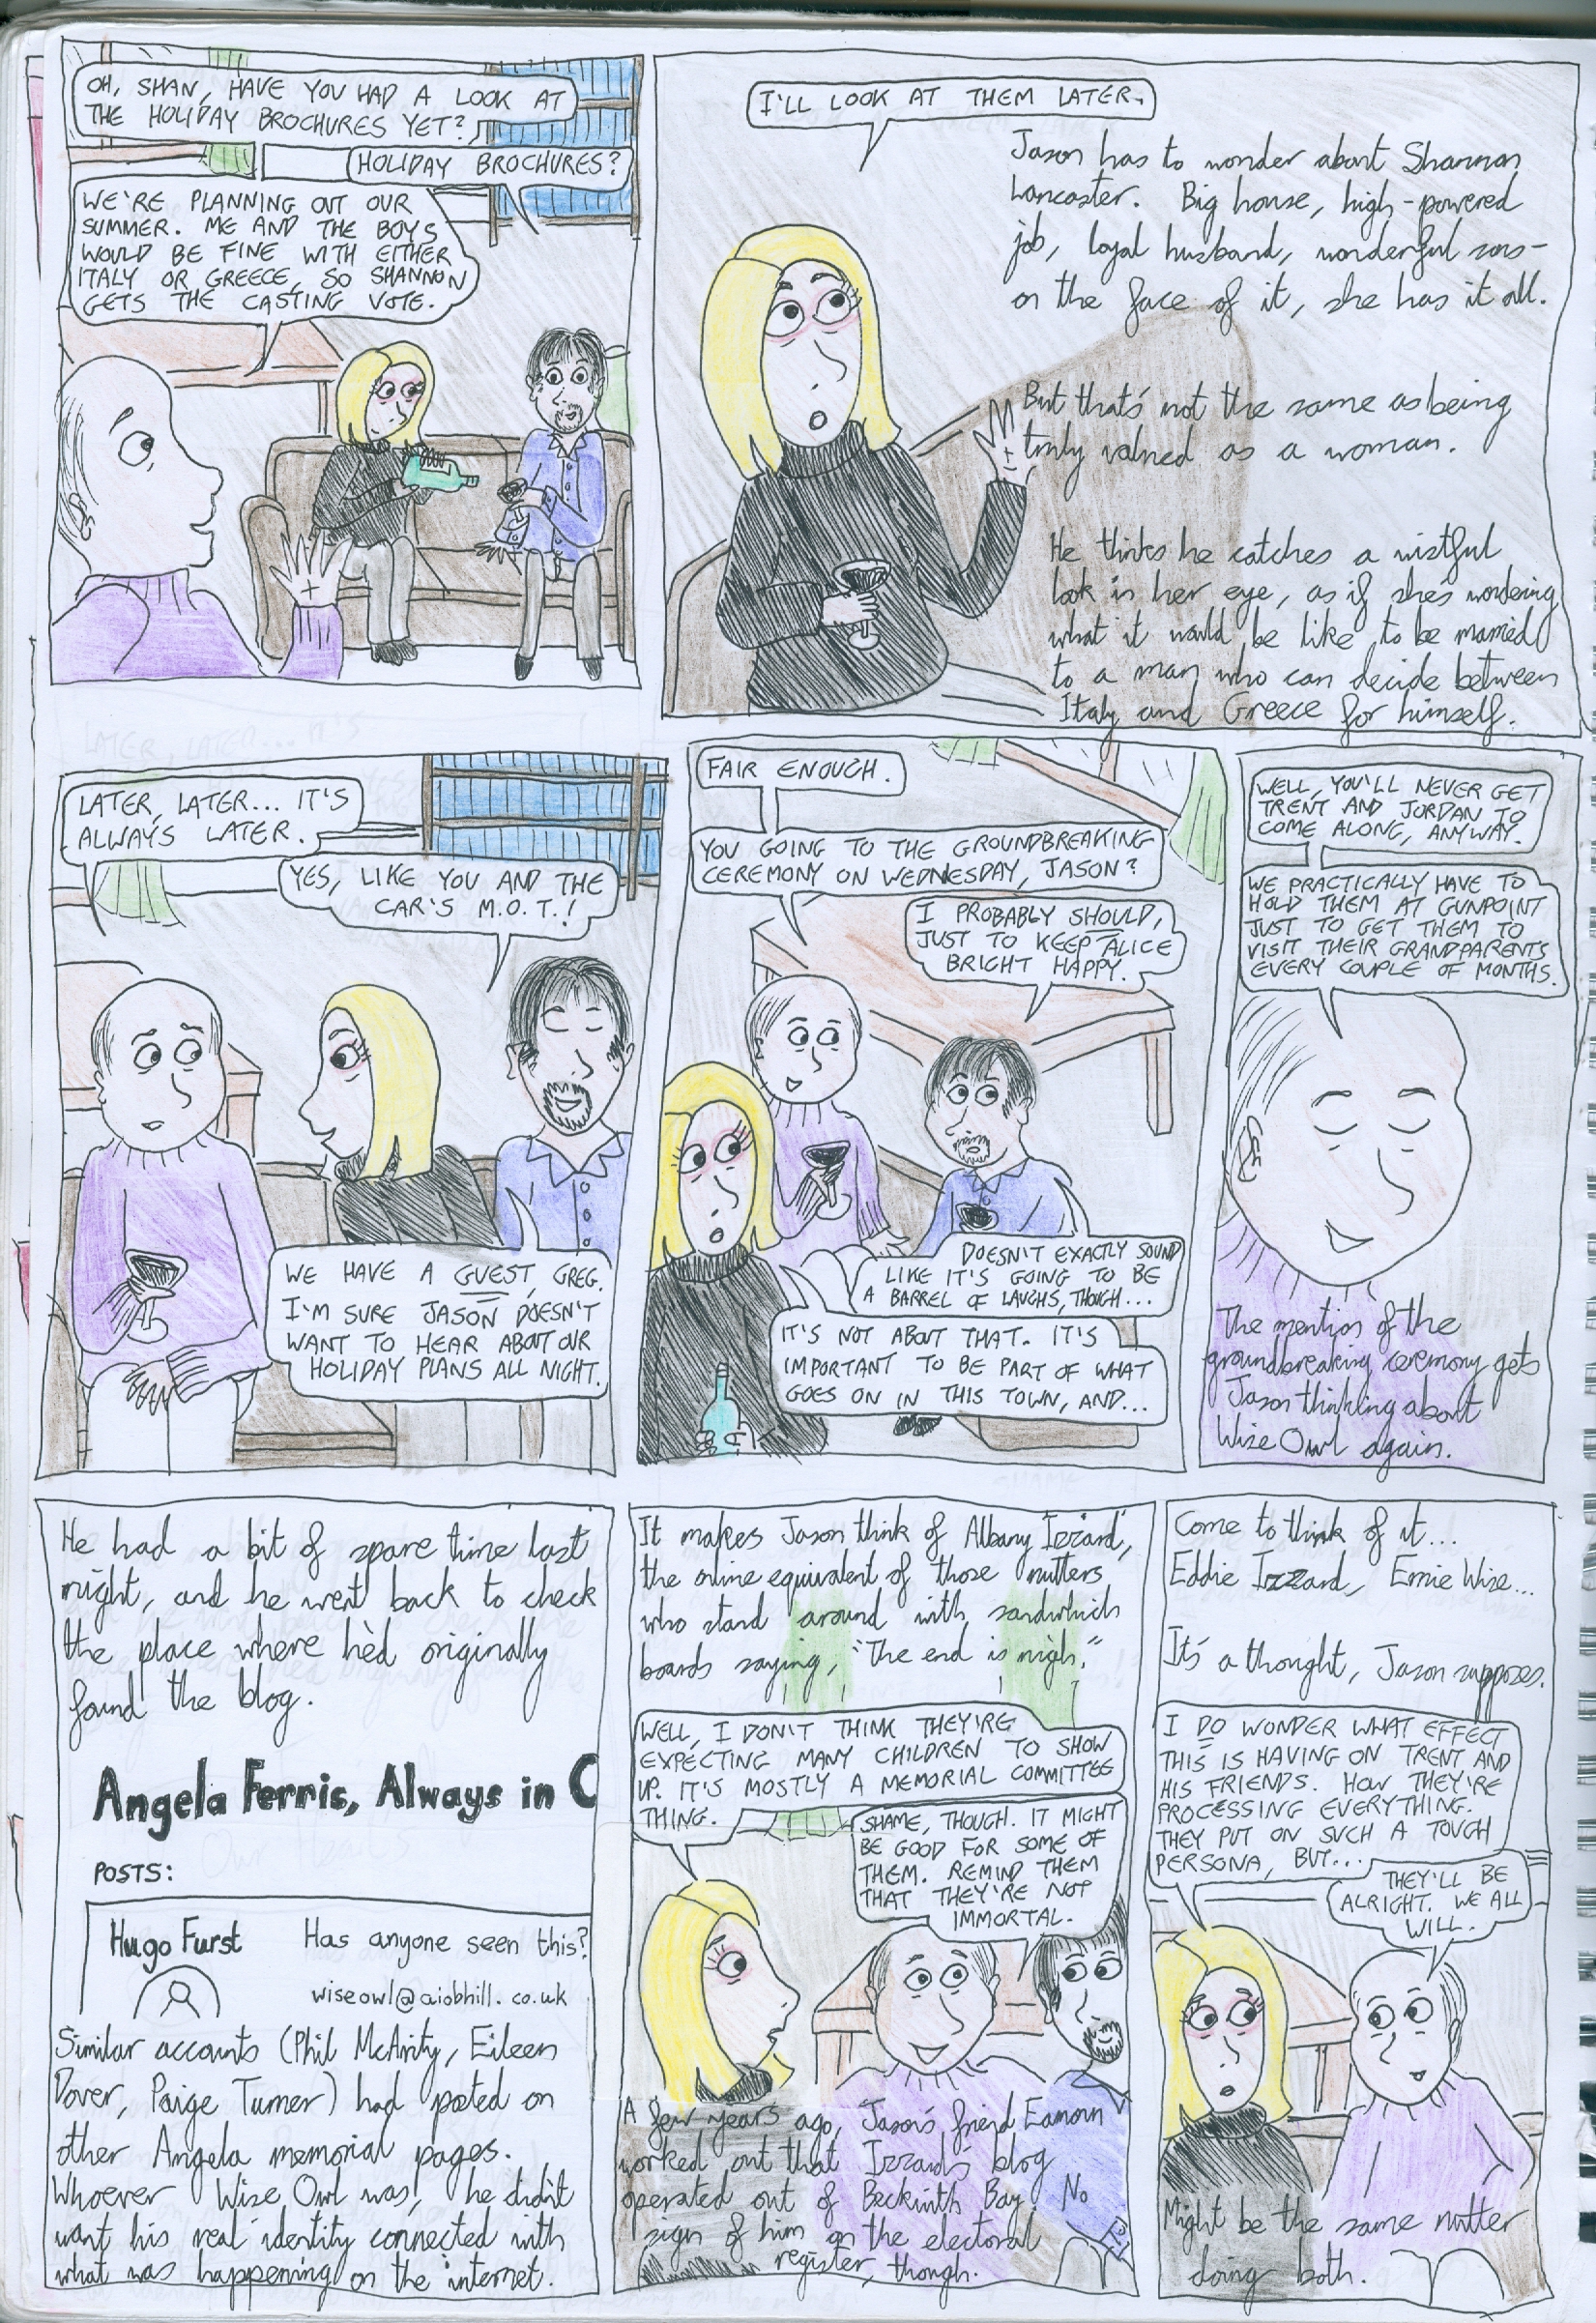 OH, SHAN, HAVE YOU HAD A LOOK AT
THE HOLIDAY BROCHURES YET?
HOLIDAY BROCHURES?
WE'RE PLANNING OUT OUR
SUMMER. ME AND THE BOYS
WOULD BE FINE WITH EITHER
ITALY OR GREECE, SO SHANNON
GETS THE CASTING VOTE.
I'LL LOOK AT THEM LATER.
Jason has to wonder about Shannon
Lancaster. Big house, high-powered
job, loyal husband, wonderful sons-
on the face of it, she has it all.
But that's not the same as being
truly valued as a woman.
He thinks he catches a wistful
look in her eye, as if she's wondering
what it would be like to be married
to a man who can decide between
Italy and Greece for himself.
LATER, LATER... IT'S
ALWAYS LATER.
YES, LIKE YOU AND THE
CAR'S M.O.T.!
WE HAVE A GUEST, GREG.
I'M SURE JASON DOESN'T
WANT TO HEAR ABOUT OUR
HOLIDAY PLANS ALL NIGHT.
FAIR ENOUGH.
YOU GOING TO THE GROUNDBREAKING
CEREMONY ON WEDNESDAY, JASON?
I PROBABLY SHOULD,
JUST TO KEEP ALICE
BRIGHT HAPPY.
DOESN'T EXACTLY SOUND
LIKE IT'S GOING TO BE
A BARREL OF LAUGHS, THOUGH...
IT'S NOT ABOUT THAT. IT'S
IMPORTANT TO BE PART OF WHAT
GOES ON IN THIS TOWN, AND...
WELL, YOU'LL NEVER GET
TRENT AND JORDAN TO
COME ALONG, ANYWAY.
WE PRACTICALLY HAVE TO
HOLD THEM AT GUNPOINT
JUST TO GET THEM TO
VISIT THEIR GRANDPARENTS
EVERY COUPLE OF MONTHS.
The mention of the
groundbreaking ceremony gets
Jason thinking about
Wise Owl again.
He had a bit of spare time last
night, and he went back to check
the place where he'd originally
found the blog.
Angela Ferris, Always in C
POSTS:
Hugo Furst
Has anyone seen this?
wiseowl@aiobhill.co.uk
Similar accounts (Phil McAvity, Eileen
Dover, Paige Turner) had posted on
other Angela memorial pages.
Whoever Wise Owl was, he didn't
want his real identity connected with
what was happening on the internet.
It makes Jason think of Albany Izzard,
the online equivalent of those nutters
who stand around with sandwhich
boards saying, "The end is nigh."
WELL, I DON'T THINK THEY'RE
EXPECTING MANY CHILDREN TO SHOW
UP. IT'S MOSTLY A MEMORIAL COMMITTEE
THING.
SHAME, THOUGH. IT MIGHT
BE GOOD FOR SOME OF
THEM. REMIND THEM
THAT THEY'RE NOT
IMMORTAL.
A few years ago, Jason's friend Eamonn
worked out that Izzard's blog
operated out of Beckwith Bay. No
sign of him on the electoral
register, though.
Come to think of it...
Eddie Izzard, Ernie Wise...
It's a thought, Jason supposes.
I DO WONDER WHAT EFFECT
THIS IS HAVING ON TRENT AND
HIS FRIENDS. HOW THEY'RE
PROCESSING EVERYTHING.
THEY PUT ON SUCH A TOUGH
PERSONA, BUT...
THEY'LL BE
ALRIGHT. WE ALL
WILL.
Might be the same nutter
doing both.